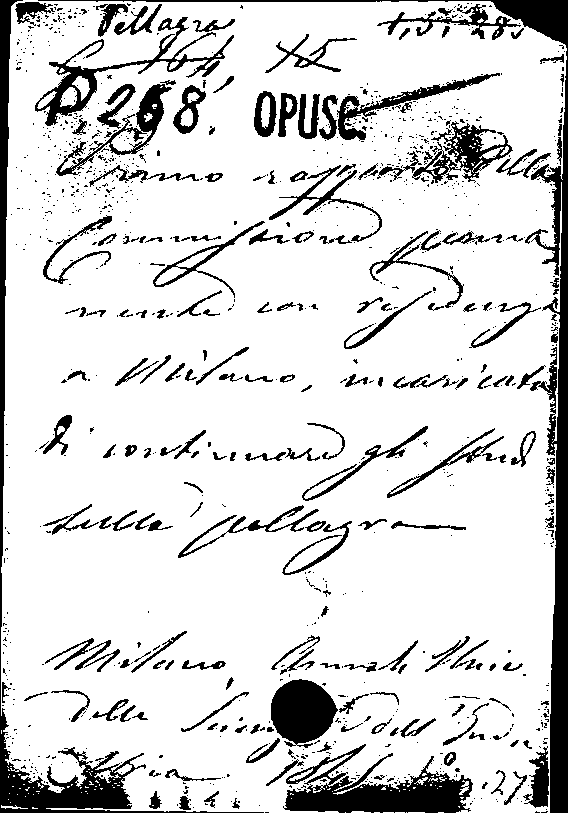 Pellagra
1,5, 285
G 164, 15
P. 268. OPUSC.
Primo rapporto della
Commissione perma
nente con residenza
a Milano, incaricata
di continuare gli studi
sulla pellagra
Milano, Annali Univ.
delle Scienze dell'Indu
stria 27